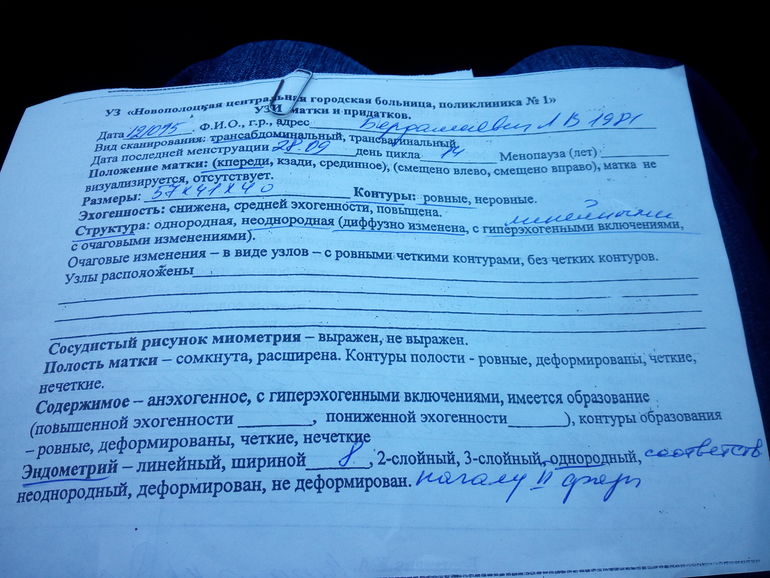 УЗ «Новополоцкая центральная городская больница, поликлиника № 1»
УЗИ матки и придатков.
Дата 121015. Ф.И.О., г.р., адрес Л В 1981
Вид сканирования: трансабдоминальный, трансвагинальный.
Дата последней менструации 28.09 день цикла 14 Менопауза (лет)
Положение матки: (кпереди, кзади, срединное), (смещено влево, смещено вправо), матка не
визуализируется, отсутствует.
Размеры: 57х41х40 Контуры: ровные, неровные.
Эхогенность: снижена, средней эхогенности, повышена.
линейными
Структура: однородная, неоднородная (диффузно изменена, с гиперэхогенными включениями,
с очаговыми изменениями).
Очаговые изменения – в виде узлов – с ровными четкими контурами, без четких контуров.
Узлы расположены
Сосудистый рисунок миометрия – выражен, не выражен.
Полость матки – сомкнута, расширена. Контуры полости - ровные, деформированы, четкие,
нечеткие.
Содержимое – анэхогенное, с гиперэхогенными включениями, имеется образование
(повышенной эхогенности , пониженной эхогенности ), контуры образования
– ровные, деформированы, четкие, нечеткие
Эндометрий – линейный, шириной 8, 2-слойный, 3-слойный, однородный, соответств
неоднородный, деформирован, не деформирован. началу II фазы